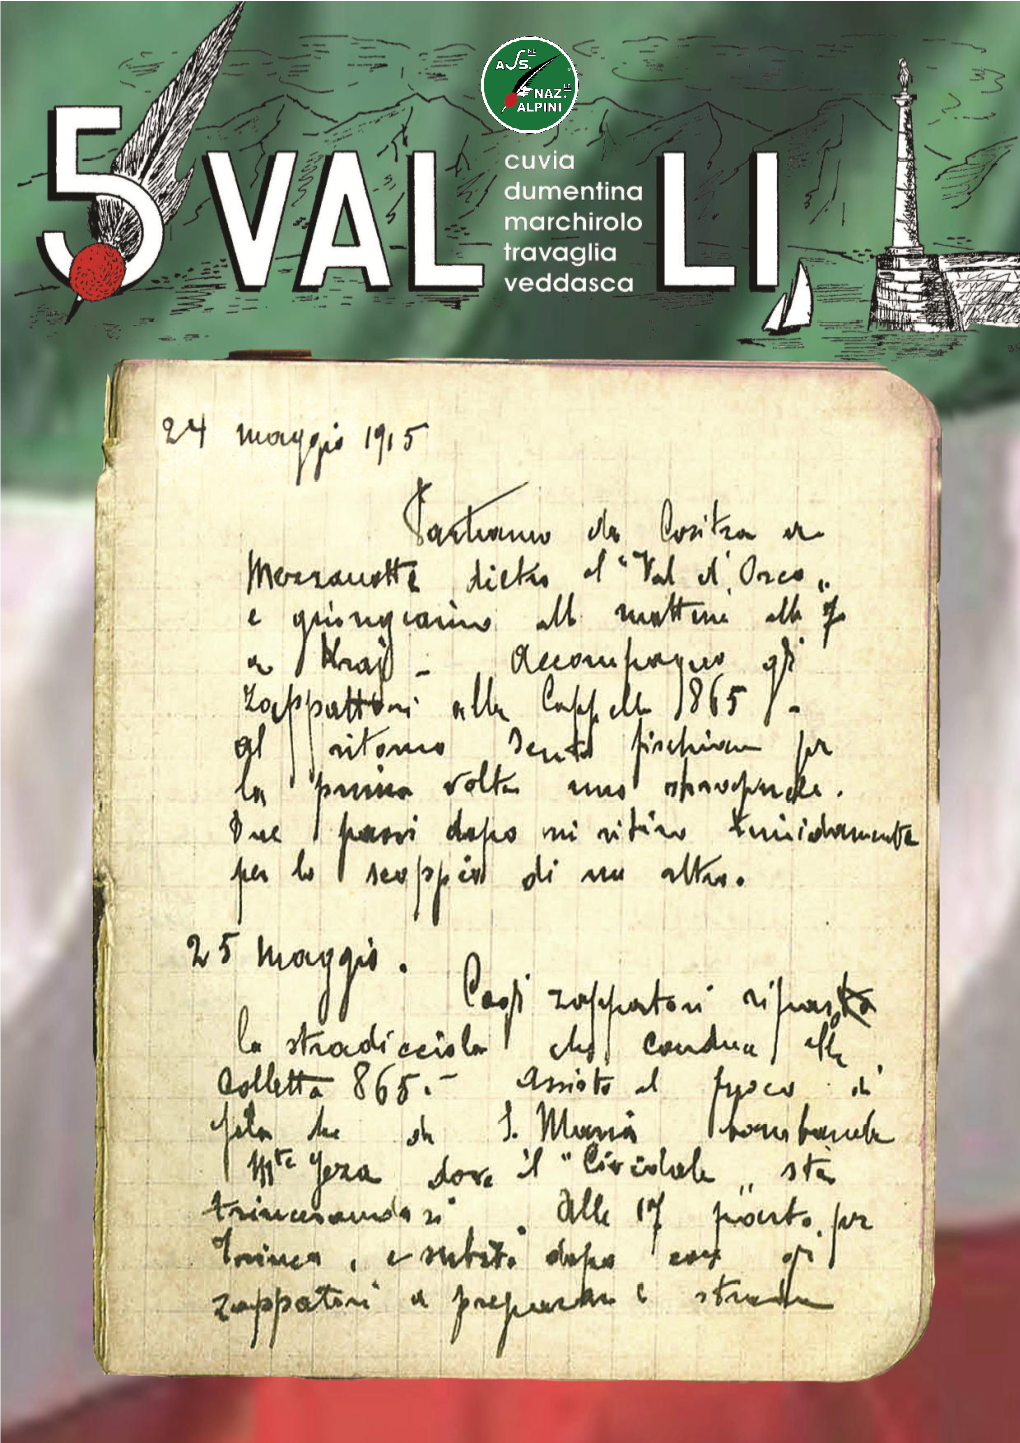 Ass.ne
Naz.le
Alpini
5 VALLI
cuvia
dumentina
marchirolo
travaglia
veddasca
24 maggio 1915
Partiamo da Cosizza a
Mezzanotte dietro il "Val d'Orco"
e giungiamo alle mattina alle 7
a Kraj - Accompagno gli
zappattori alla Cappella 865 -
al ritorno sento fischiare per
la prima volta uno shrapnele.
Due passi dopo mi ritiro timidamente
per lo scoppio di un altro.
25 maggio.
Cogli zappatori
la stradicciola che conduce alla
Colletta 865. - Assisto al fuoco di
che da S. Maria bombarda
Mte Jeza dove il "Cividale" sta
trincerandosi. Alle 17 parto per
, e subito dopo con gli
zappatori a preparare